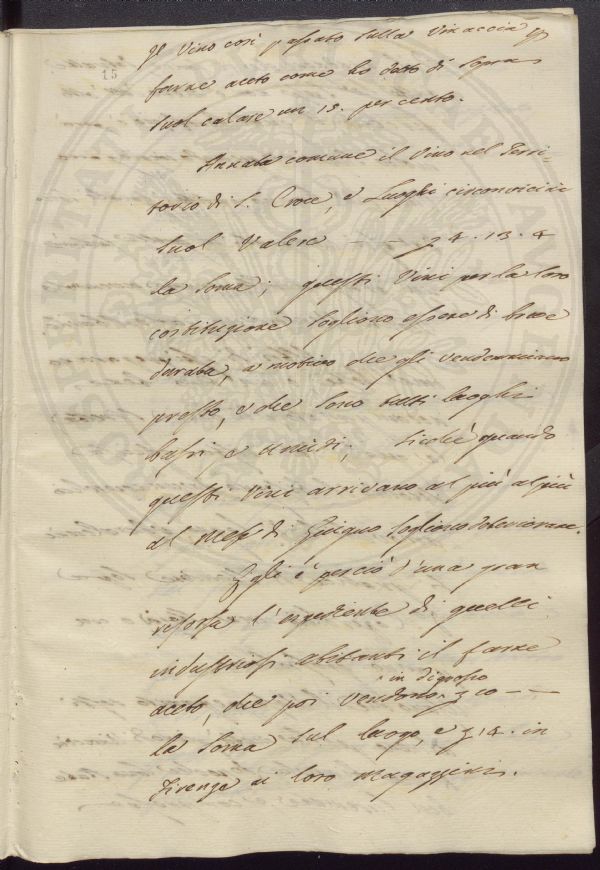 15
Il Vino così passato sulla Vinaccia p
farne aceto come ho detto di sopra
suol calare un 15. per cento.
Annata comune il Vino nel Terri-
torio di S. Croce, e Luoghi circonvicini
suol Valere — — £ 4. 13. 4
la Soma; questi Vini per la loro
costituzione sogliono essere di breve
durata, a motivo che gli vendemmiano
presto, e che sono tutti luoghi
bassi e umidi; sicchè quando
questi Vini arrivano al più al più
al Mese di Giugno sogliono deteriorare.
Egli è perciò d'una gran
risorsa l'espediente di quelli
industriosi abitanti il farne
aceto, che poi Vendono in digrosso £ 10 — —
la Soma sul luogo, e £ 14. in
Firenze ai loro Magazzini.